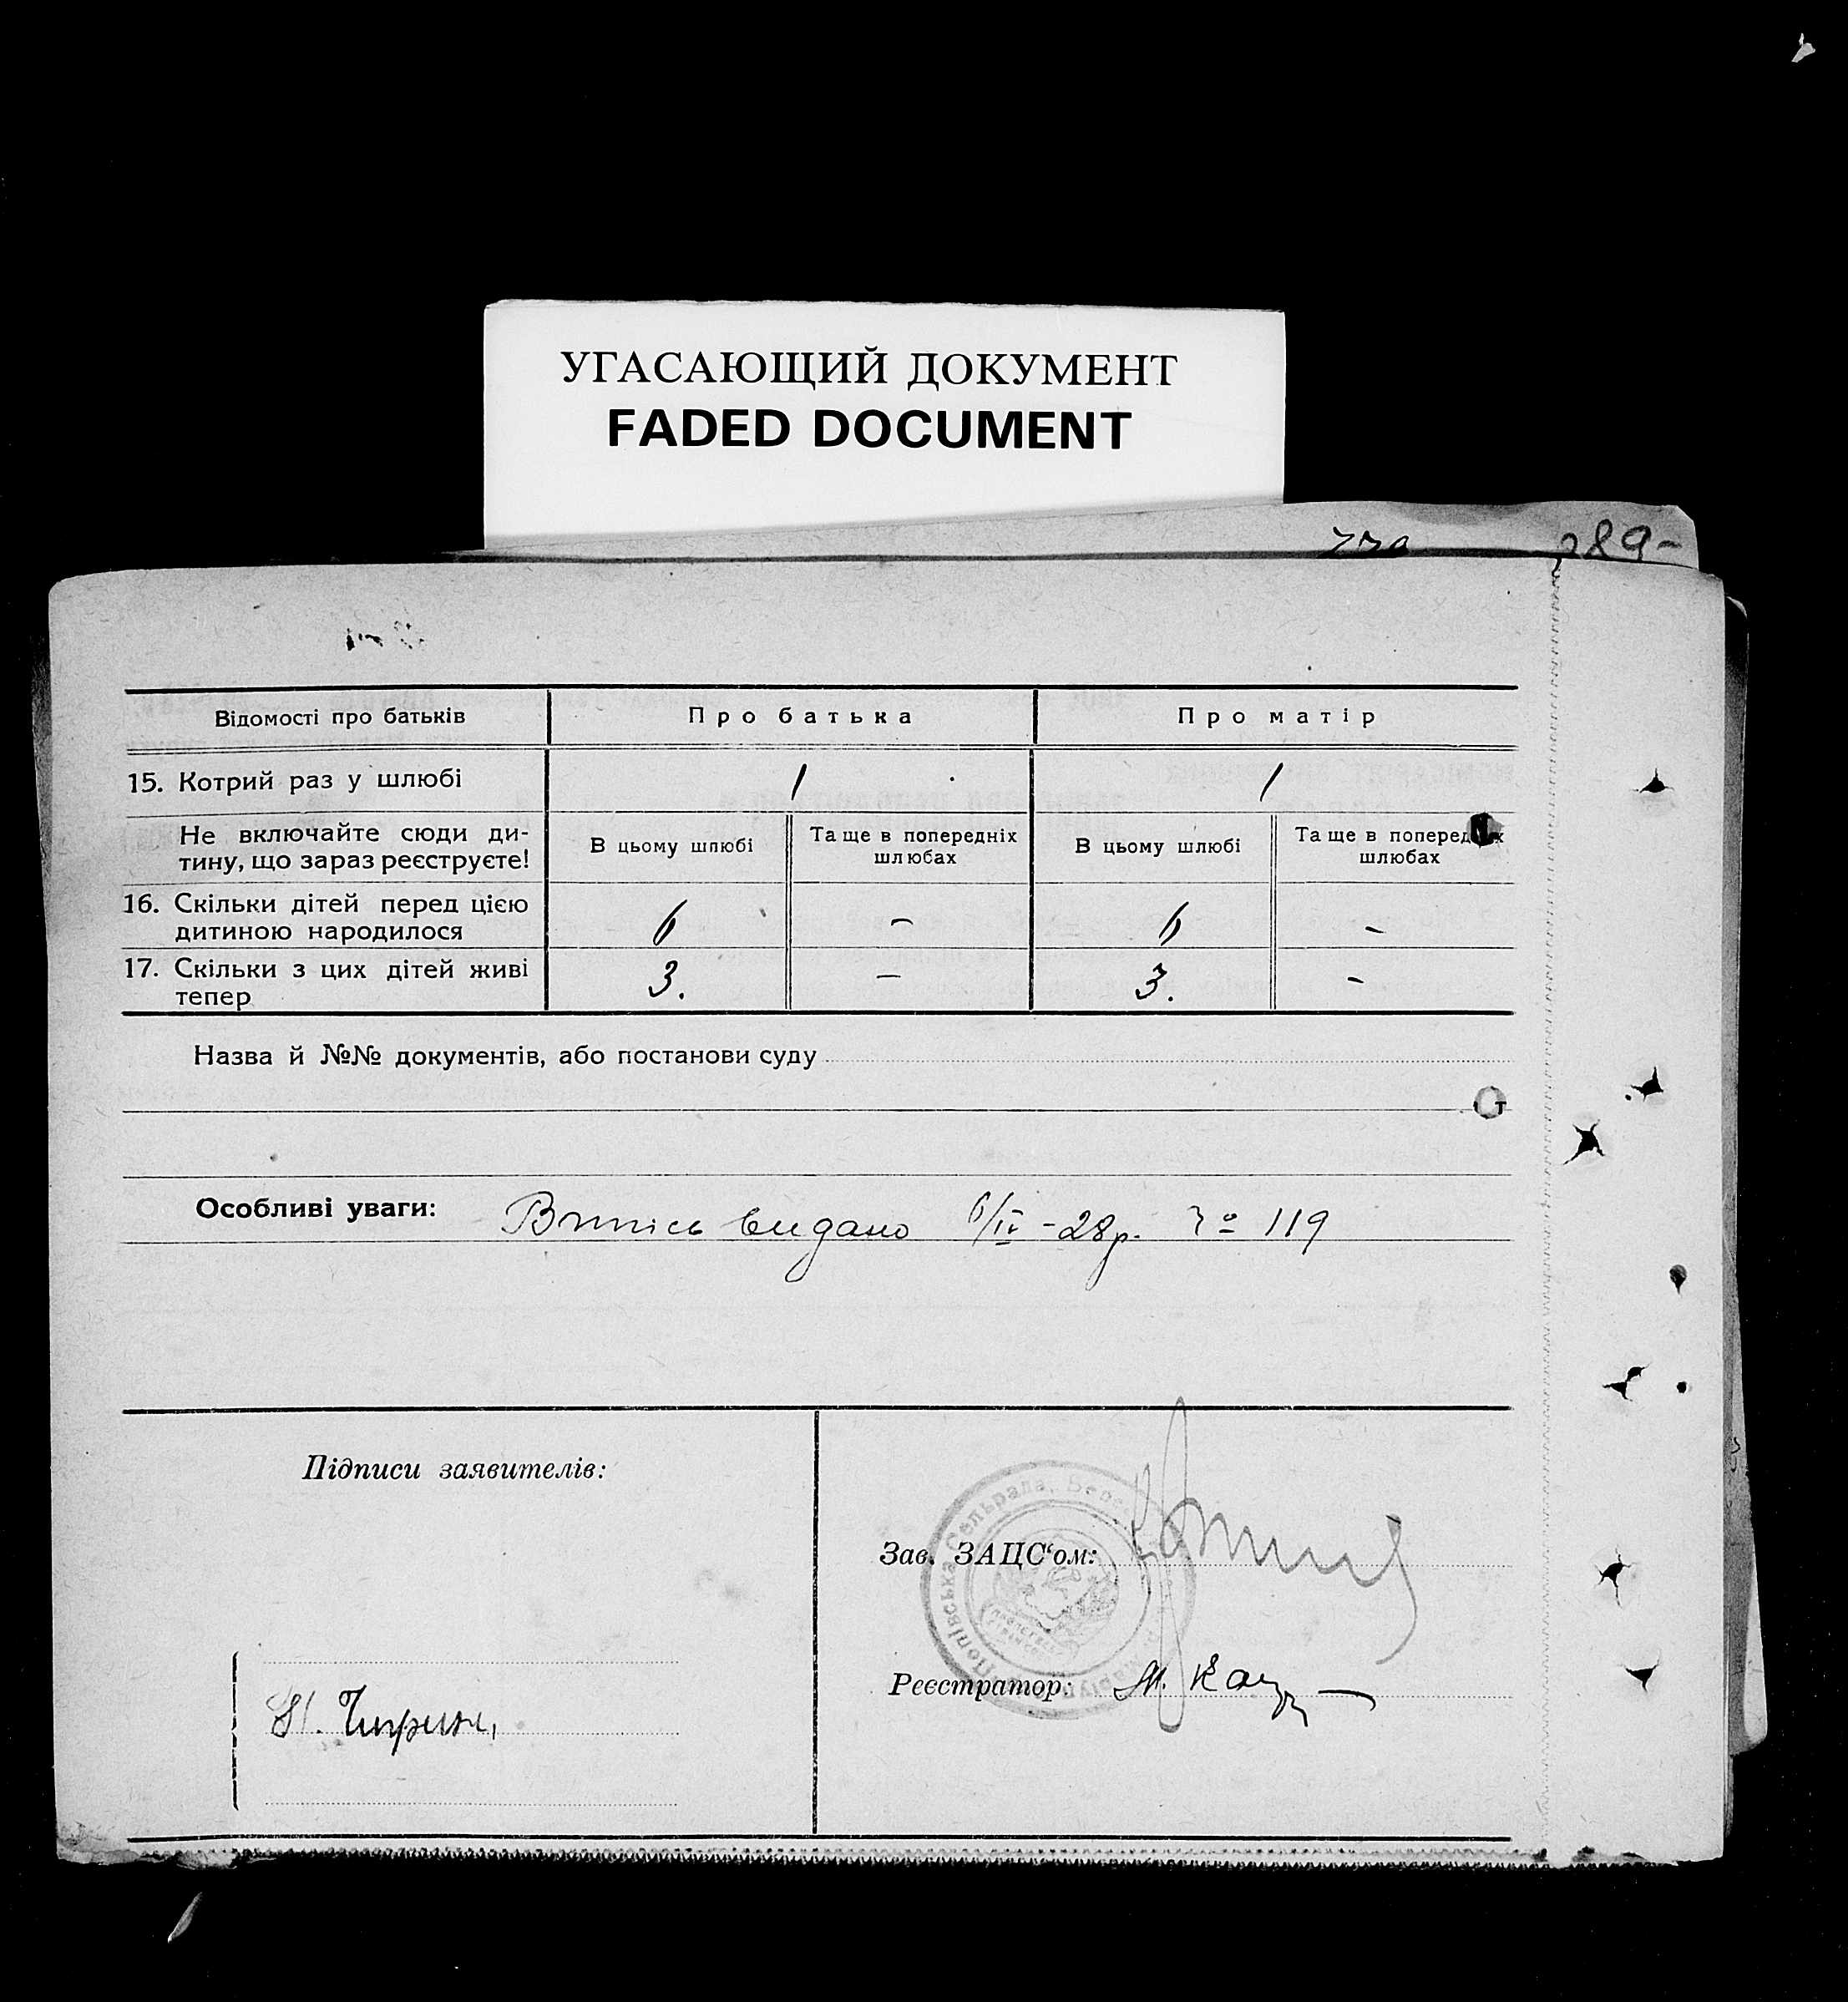 УГАСАЮЩИЙ ДОКУМЕНТ
FADED DOCUMENT
289-
Відомості про батьків Про батька Про матір
15. Котрий раз у шлюбі 1 1
Не включайте сюди ди-
тину, що зараз реєструєте!
В цьому шлюбі Та ще в попередніх
шлюбах
В цьому шлюбі Та ще в попередніх
шлюбах
16. Скільки дітей перед цією
дитиною народилося 6 – 6 –
17. Скільки з цих дітей живі
тепер 3. – 3. –
Назва й №№ документів, або постанови суду
Особливі уваги: Випись видано 6/IV -28р. № 119
Підписи заявителів:
Попівська Сельрада,
Зав. ЗАЦС'ом:
Реєстратор: М.